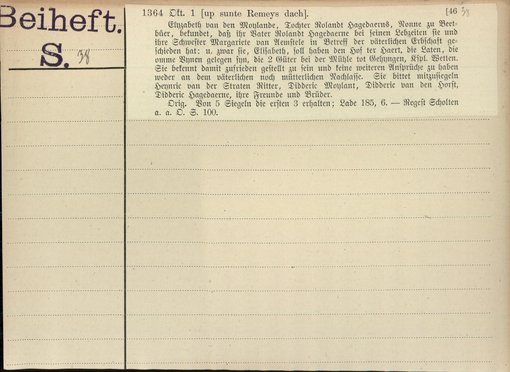 Beiheft.
S. 38
1364 Okt. 1 [up sunte Remeys dach]. [46 38
Elyzabeth van den Moylande, Tochter Rolandt Hagedaerns, Nonne zu Beet-
büer, bekundet, daß ihr Vater Rolandt Hagedaerne bei seinen Lebzeiten sie und
ihre Schwester Margariete van Aemstele in Betreff der väterlichen Erbschaft ge-
schieden hat: u. zwar sie, Elisabeth, soll haben den Hof ter Haert, die Laten, die
omme Bynen gelegen syn, die 2 Güter bei der Mühle tot Gesyngen, Kspl. Betten.
Sie bekennt damit zufrieden gestellt zu sein und keine weiteren Ansprüche zu haben
weder an dem väterlichen noch mütterlichen Nachlasse. Sie bittet mitzusiegeln
Heynric van der Straten Ritter, Didderic Moylant, Didderic van den Horst,
Didderic Hagedaerne, ihre Freunde und Brüder.
Orig. Von 5 Siegeln die ersten 3 erhalten; Lade 185, 6. — Regest Scholten
a. a. O. S. 100.